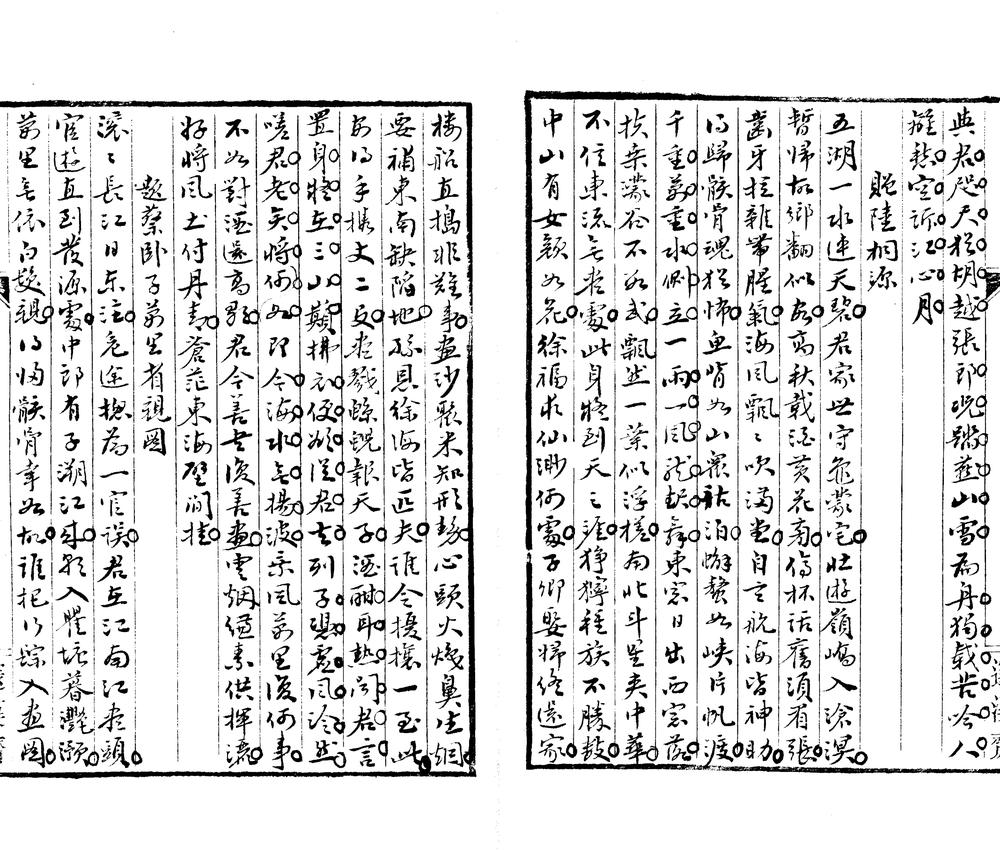 與君咫尺猶胡越張郎説難燕山雪扁舟獨載苦吟人
離愁空訴江心月
贈陸桐源
五湖一水連天碧君家世守龜蒙宅壯遊嶺嶠入滄溟
暫歸故鄉翻似客高秋載酒黃花裔傍杯話舊須眉張
齒牙猶雜帶腥氣海風飄飄吹滿堂自言航海皆神助
得歸骸骨魂猶怖魚背如山泊蠏螯如峽片帆渡
千重萬重水側立一雨一風龍起舞東窓日出西窓落
扶桑濛谷不知武飄然一葉似浮槎南北斗星夾中華
不信東流無處此身將到天之涯猙獰種族不勝數
中山有女顔如花徐福求仙渺何處子卿娶婦終還家
樓船直搗非難事畫沙聚米知形勢心頭火燒鼻生烟
要補東南缺陷地孫恩徐海皆匹夫誰令擾攘一至此
安得手攜丈二殳盡戮鯨鯢報天子酒酣耳熱聞君言
置身將在三山巔拂衣便欲從君去列子御虛風泠然
嗟君老矣將何如即今海水無揚波乘風萬里復何事
不如對酒還高歌君今善書復善畫雲烟縑素供揮灑
好將風土付丹青蒼茫東海壁間挂
題蔡卧子萬里省親圖
滾滾長江日東注危途總為一官誤君在江南江盡頭
宦遊直到發源處中郎有子溯江入瞿塘暮灩澦
萬里無依白髮親得歸骸骨幸如故誰把行蹤入畫圖